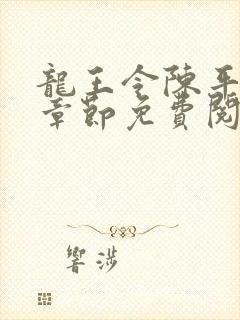 龍王令陳平
章節免費閱
響涉